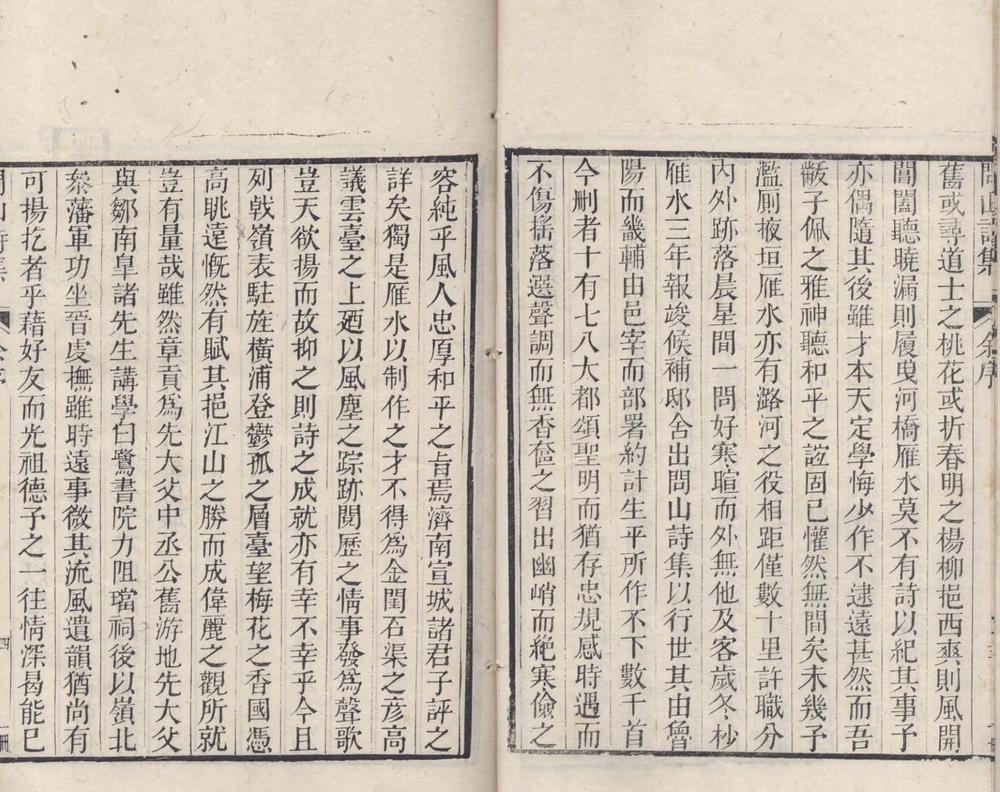 問山詩集 余序
舊或尋道士之桃花或折春明之楊柳挹西爽則風開
閶闔聽曉漏則履曳河橋雁水莫不有詩以紀其事予
亦偶隨其後雖才本天定學悔少作不逮遠甚然而吾
黻子佩之雅神聽和平之誼固已懽然無間矣未幾予
濫厠掖垣雁水亦有潞河之役相距僅數十里許職分
內外跡落晨星間一問好寒暄而外無他及客歲冬杪
雁水三年報竣候補邸舍出問山詩集以行世其由曾
陽而畿輔由邑宰而部署約計生平所作不下數千首
今刪者十有七八大都頌聖明而猶存忠規感時遇而
不傷搖落選聲調而無香奩之習出幽峭而絶寒儉之
容純乎風人忠厚和平之旨焉濟南宣城諸君子評之
詳矣獨是雁水以制作之才不得爲金閨石渠之彦高
議雲臺之上廼以風塵之踪跡閱歷之情事發爲聲歌
豈天欲揚而故抑之則詩之成就亦有幸不幸乎今且
列戟嶺表駐旌橫浦登鬱孤之層臺望梅花之香國憑
高眺遠慨然有賦其挹江山之勝而成偉麗之觀所就
豈有量哉雖然章貢爲先大父中丞公舊游地先大父
與鄒南臯諸先生講學白鷺書院力阻璫祠後以嶺北
叅藩軍功坐晉虔撫雖時遠事微其流風遺韻猶尚有
可揚扢者乎藉好友而光祖德予之一往情深曷能已
問山詩集 余序 四